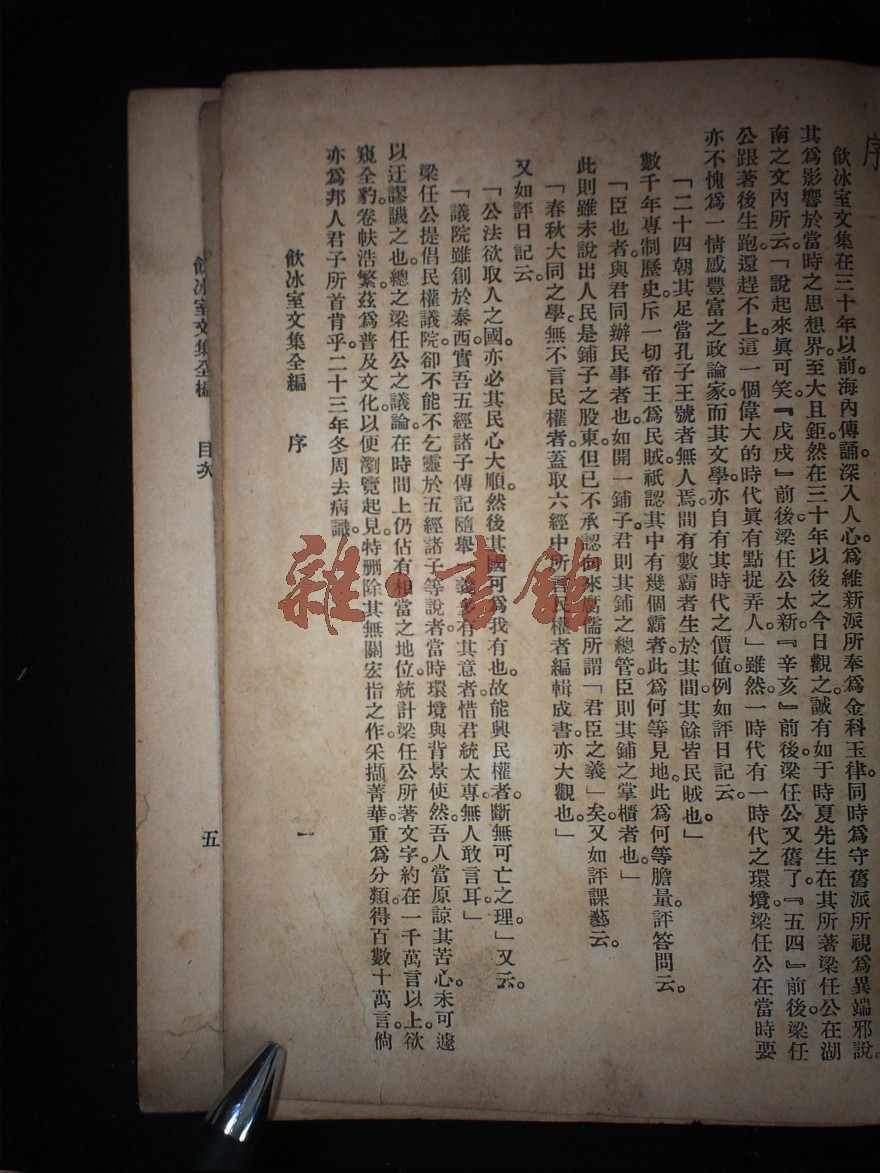 序
飲冰室文集在三十年以前。海內傳誦。深入人心。爲維新派所奉爲金科玉律。同時爲守舊派所視爲異端邪說。
其爲影響於當時之思想界。至大且鉅。然在三十年以後之今日觀之。誠有如于時夏先生在其所著梁任公在湖
南之文內所云。「說起來眞可笑。『戊戌』前後。梁任公太新。『辛亥』前後。梁任公又舊了。『五四』前後。梁任
公跟著後生跑。還趕不上。這一個偉大的時代。眞有點捉弄人」雖然。一時代有一時代之環境。梁任公在當時。要
亦不愧爲一情感豐富之政論家。而其文學。亦自有其時代之價值。例如評日記云。
「二十四朝其足當孔子王號者無人焉。間有數霸者生於其間。其餘皆民賊也」
數千年專制歷史。斥一切帝王爲民賊。祇認其中有幾個霸者。此爲何等見地。此爲何等膽量。評答問云。
「臣也者。與君同辦民事者也。如開一鋪子。君則其鋪之總管。臣則其鋪之掌櫃者也。」
此則雖未說出人民是鋪子之股東。但已不承認向來腐儒所謂「君臣之義」矣。又如評課藝云。
「春秋大同之學。無不言民權者。蓋取六經中所言民權者編輯成書。亦大觀也。」
又如評日記云。
「公法欲取人之國。亦必其民心大順。然後其國可爲我有也。故能興民權者。斷無可亡之理。」又云。
「議院雖創於泰西。實吾五經諸子傳記隨舉一義。多有其意者。惜君統太專。無人敢言耳。」
梁任公提倡民權議院。卻不能不乞靈於五經諸子等說者。當時環境與背景使然。吾人當原諒其苦心。未可遽
以迂謬譏之也。總之梁任公之議論。在時間上仍佔有相當之地位。統計梁任公所著文字。約在一千萬言以上。欲
窺全豹。卷帙浩繁。茲爲普及文化。以便瀏覽起見。特刪除其無關宏指之作。采擷菁華。重爲分類。得百數十萬言。倘
亦爲邦人君子所首肯乎。二十三年冬周去病識。
飲冰室文集全編 序 一
飲冰室文集全編 目次 五
雜·書館